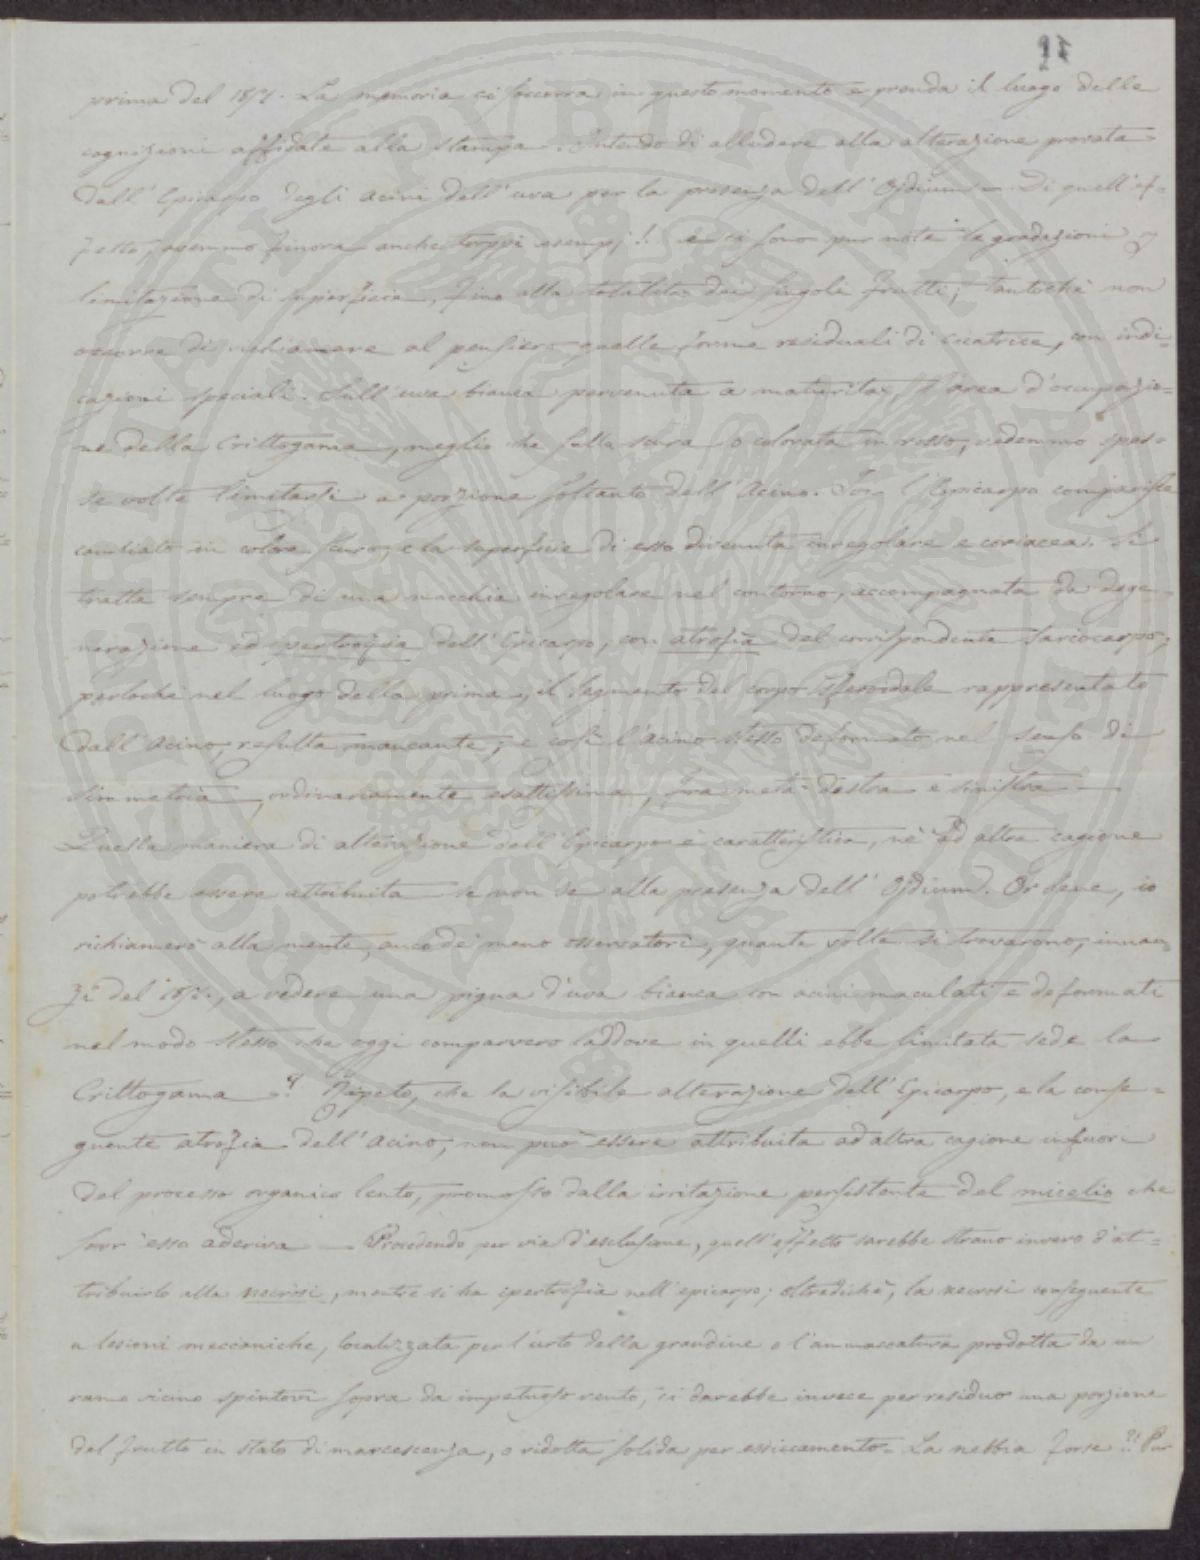 prima del 1851. La memoria ci soccorra in questo momento e prenda il luogo delle
cognizioni affidate alla stampa. Intendo di alludere alla alterazione provata
dall'Epicarpo degli acini dell'uva per la presenza dell'Ojdium. Di quell'ef-
fetto, avemmo finora anche troppi esempj! e ci sono pur note le gradazioni
limitazione di superficie, fino alla totalità dei singoli frutti; tantochè non
occorre di richiamare al pensiero quelle forme residuali di cicatrice, con indi-
cazioni speciali. Sull'uva bianca pervenuta a maturità, l'area d'occupazio-
ne della Crittogama, meglio che sulla scura o colorata in rosso, vedemmo spes-
se volte limitarsi a porzione soltanto dell'Acino. Ivi l'Epicarpo comparisce
cambiato in colore scuro, e la superficie di esso divenuta irregolare e coriacea. Si
tratta sempre di una macchia irregolare nel contorno, accompagnata da dege-
nerazione ed ipertrofia dell'Epicarpo, con atrofia del corrispondente Sarcocarpo;
perlochè nel luogo della prima, il segmento del corpo sferoidale rappresentato
dall'Acino, resulta mancante; e così l'Acino stesso deformato nel senso di
simmetria, ordinariamente esattissima, fra metà destra e sinistra —
Quella maniera di alterazione dell'Epicarpo è caratteristica, nè ad altra cagione
potrebbe essere attribuita se non se alla presenza dell'Ojdium. Or bene, io
richiamerò alla mente, anco de' meno osservatori, quante volte si trovarono, innan-
zi del 1851, a vedere una pigna d'uva bianca con acini maculati e deformati
nel modo stesso che oggi comparvero laddove in quelli ebbe limitata sede la
Crittogama? Ripeto, che la visibile alterazione dell'Epicarpo, e la conse-
guente atrofia dell'Acino, non può essere attribuita ad altra cagione infuori
del processo organico lento, promosso dalla irritazione persistente del micelio che
sovr'esso aderiva — Procedendo per via d'esclusione, quell'effetto sarebbe strano invero d'at-
tribuirlo alla necrosi, mentre si ha ipertrofia nell'epicarpo; oltredichè, la necrosi conseguente
a lesioni meccaniche, localizzata per l'urto della grandine o l'ammaccatura prodotta da un
ramo vicino spintovi sopra da impetuoso vento, ci darebbe invece per residuo una porzione
del frutto in stato di marcescenza, o ridotta solida per essiccamento. La nebbia forse?! Pur